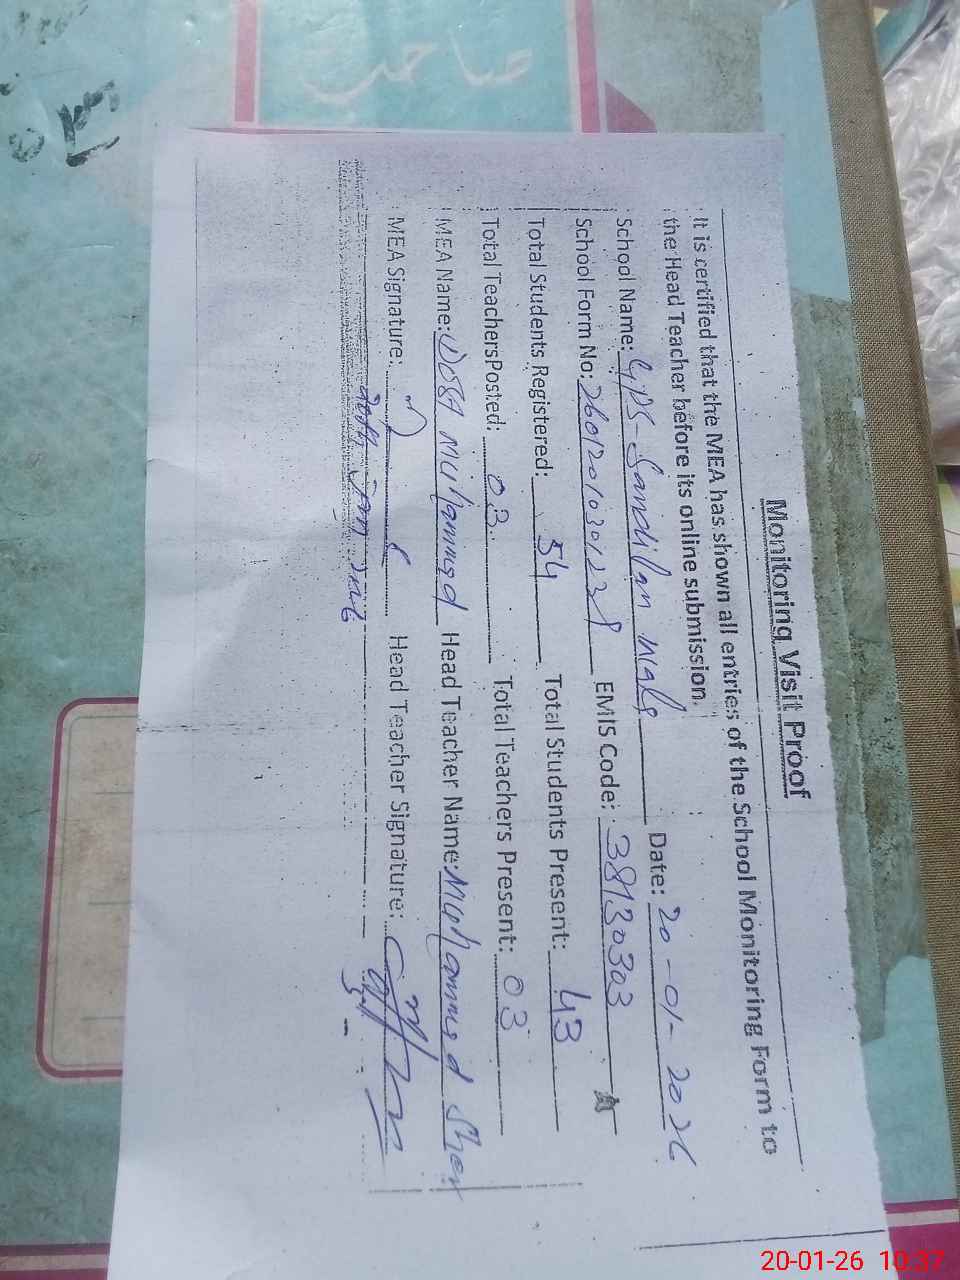 صاحب
Monitoring Visit Proof
It is certified that the MEA has shown all entries of the School Monitoring Form to
the Head Teacher before its online submission.
School Name: GPS-Sandilan Male Date: 20-01-2026
School Form No: EMIS Code: 38130303
Total Students Registered: 54 Total Students Present: 43
Total TeachersPosted: 03 Total Teachers Present: 03
MEA Name: Dost Muhammad Head Teacher Name: Muhammad Sher
MEA Signature: Head Teacher Signature:
20-01-26 10:37